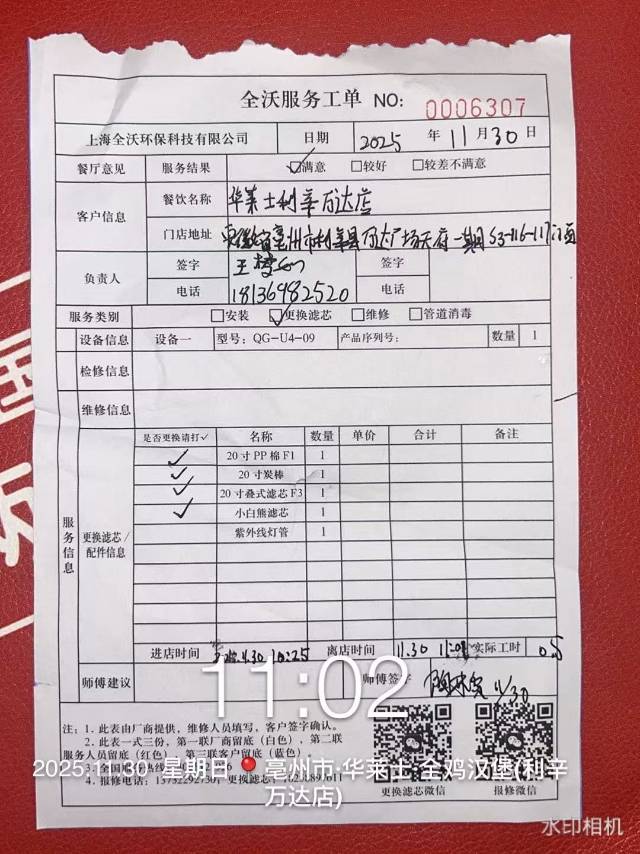 全沃服务工单 NO: 0006307
上海全沃环保科技有限公司 日期 2025 年 11 月 30 日
餐厅意见 服务结果 满意 较好 较差不满意
客户信息 餐饮名称 华莱士利辛万达店
门店地址 安徽省亳州市利辛县万达广场天府一期S3-116-117门面
负责人 签字 王 签字
电话 18136982520 电话
服务类别 安装 更换滤芯 维修 管道消毒
设备信息 设备一 型号: QG-U4-09 产品序列号: 数量 1
检修信息
维修信息
服务信息 更换滤芯/配件信息
是否更换请打✓ 名称 数量 单价 合计 备注
✓ 20寸PP棉F1 1
✓ 20寸炭棒 1
✓ 20寸叠式滤芯F3 1
✓ 小白熊滤芯 1
紫外线灯管 1
进店时间 11.30 10:25 离店时间 11.30 实际工时 0.5
师傅建议 师傅签字 11/30
11:02
注: 1. 此表由厂商提供, 维修人员填写, 客户签字确认。
2. 此表一式三份, 第一联厂商留底(白色), 第二联
服务人员留底(红色), 第三联客户留底(蓝色)。
3. 全国服务热线
4. 报修电话: 13732292730, 更换滤芯:
更换滤芯微信 报修微信
2025.11.30 星期日 亳州市·华莱士·全鸡汉堡(利辛
万达店)
水印相机